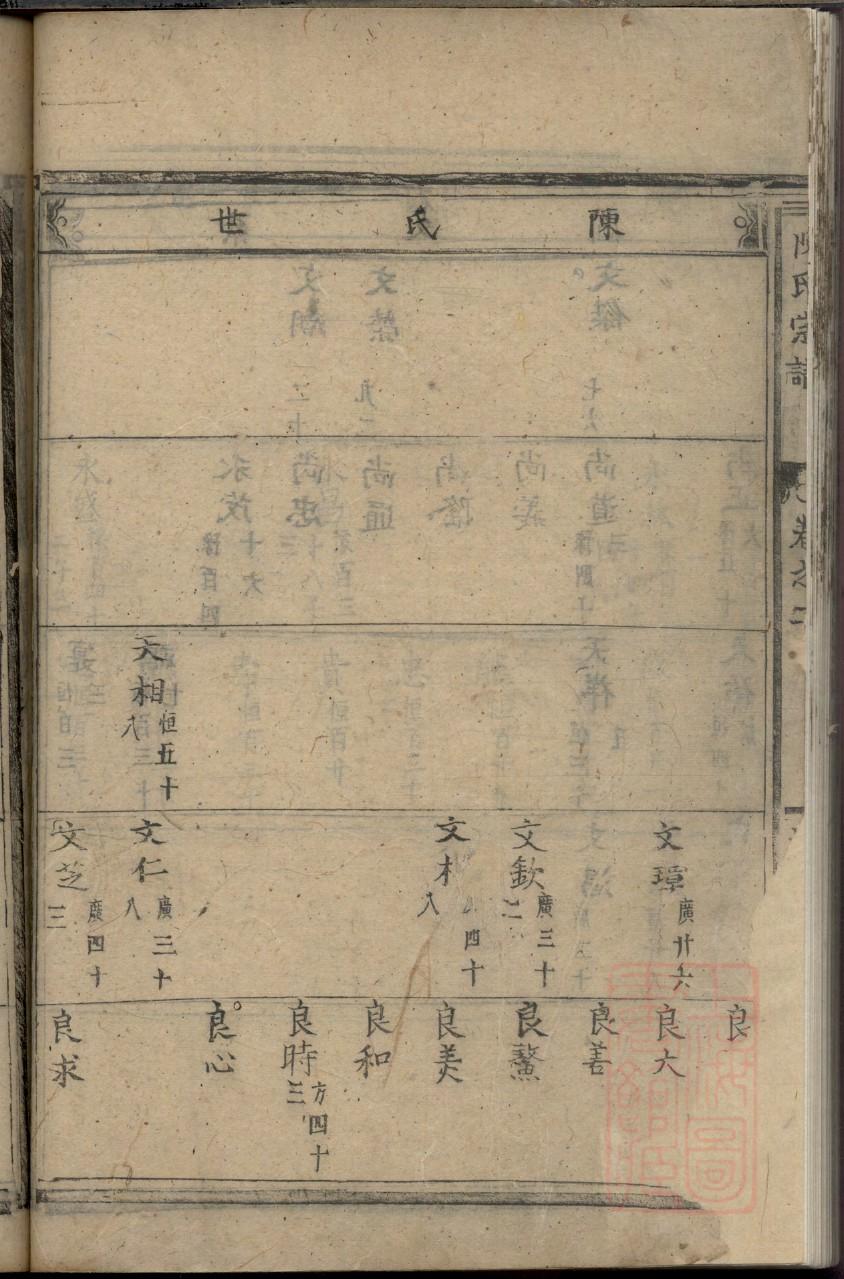 陳氏世
陳氏宗譜
卷之
天相恒五十八
文璋廣廿六
文欽廣三十二
文木 四十八
文仁廣三十八
文芝廣四十三
良
良大
良善
良鰲
良美
良和
良時方四十三
良心
良求